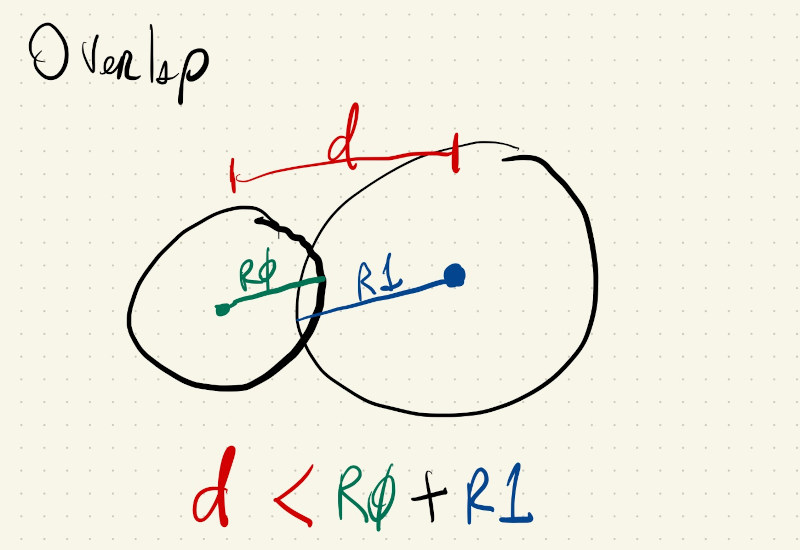 Overlap
d
R0 R1
d < R0 + R1